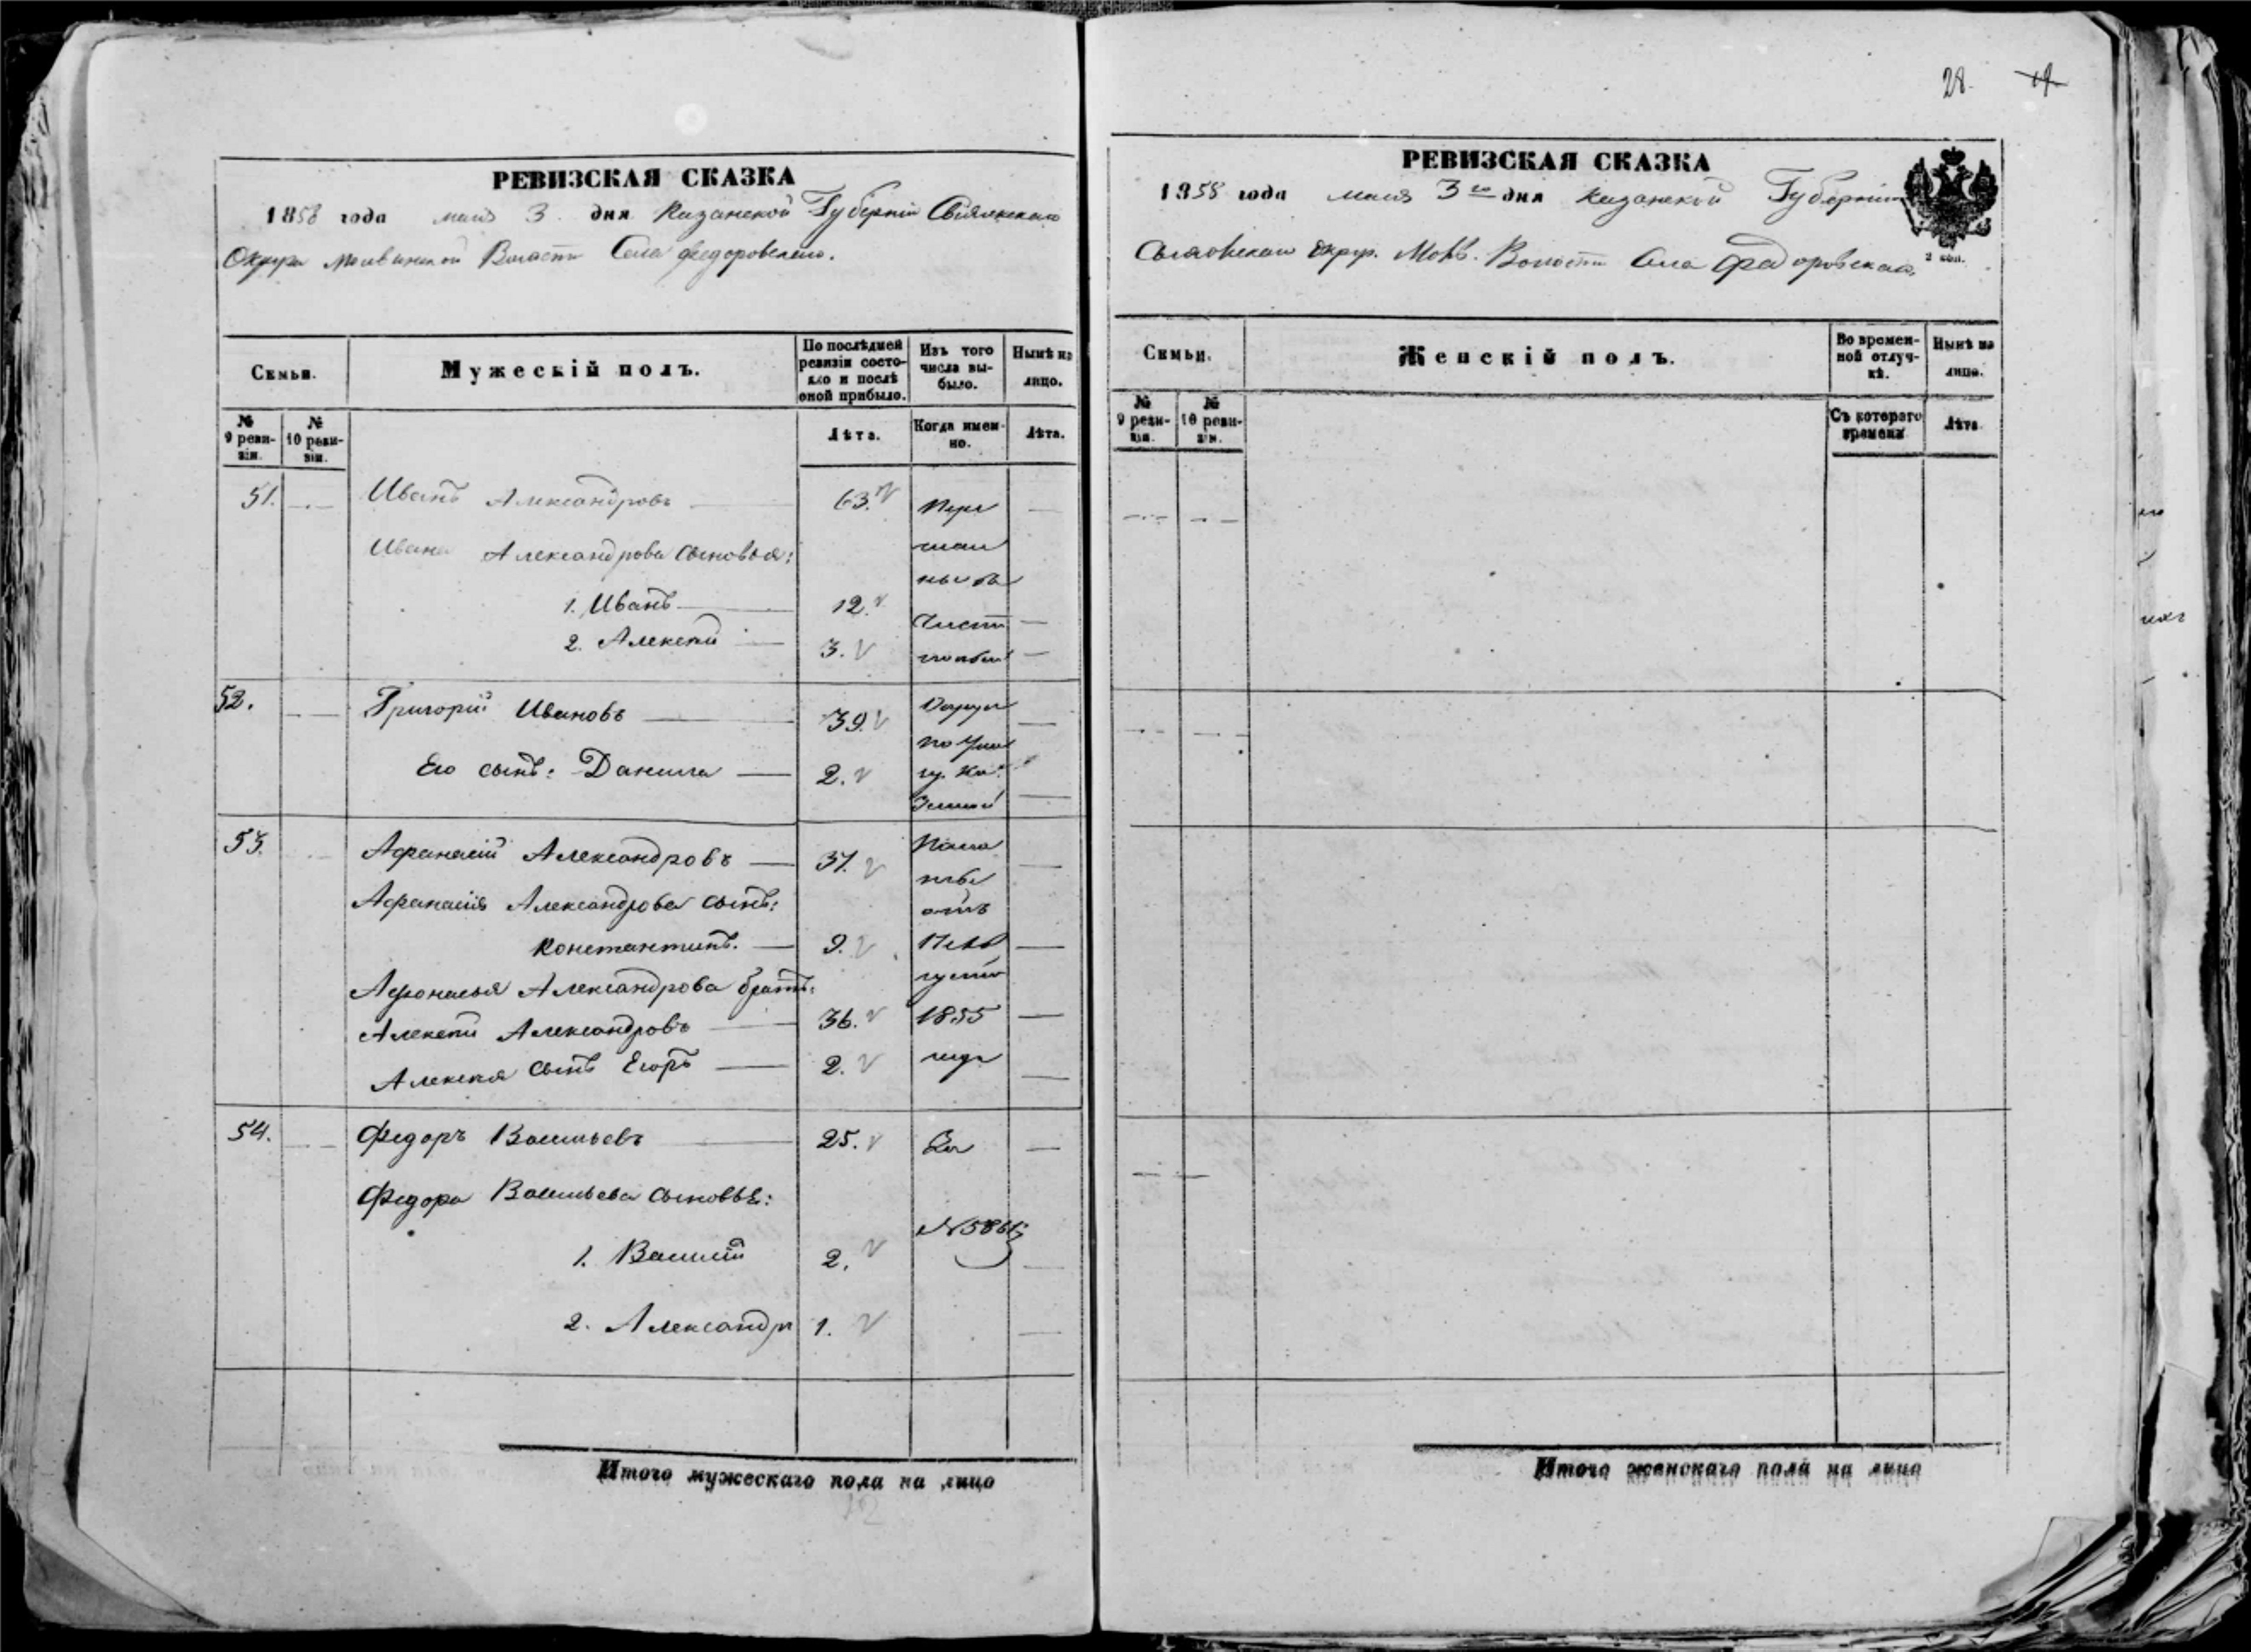 28. 19
РЕВИЗСКАЯ СКАЗКА
1858 года мая 3 дня Казанской Губерніи Свіяжскаго
Округа Волости Села Федоровскаго.
Семьи.
Мужескій полъ.
По послѣдней ревизіи состояло и послѣ оной прибыло.
Изъ того числа выбыло.
Нынѣ на лицо.
№ 9 ревизіи.
№ 10 ревизіи.
Лѣта.
Когда именно.
Лѣта.
51. Иванъ Александровъ 63.
Ивана Александрова сыновья:
1. Иванъ 12.
2. Алексѣй 3.
52. Григорій Ивановъ 39.
Его сынъ: Данила 2.
53. Афанасій Александровъ 37.
Афанасія Александрова сынъ:
Константинъ. 9.
Афонасья Александрова братъ:
Алексѣй Александровъ 36. 1855
Алексѣя сынъ Егоръ 2. года
54. Федоръ Васильевъ 25. За
Федора Васильева сыновья:
1. Василій 2.
2. Александръ 1.
Итого мужескаго пола на лицо
12
РЕВИЗСКАЯ СКАЗКА
1858 года мая 3го дня Казанской Губерніи
Округ. Волости Села Федоровскаго,
2 коп.
Семьи.
Женскій полъ.
Во временной отлучкѣ.
Нынѣ на лицо.
№ 9 ревизіи.
№ 10 ревизіи.
Съ котораго времени
Лѣта
Итого женскаго пола на лицо